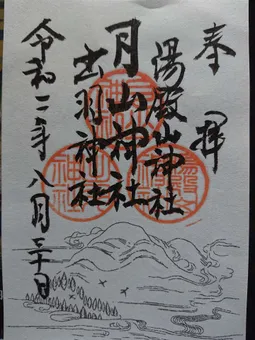 奉拝
湯殿山神社
月山神社
出羽神社
令和二年八月三十日